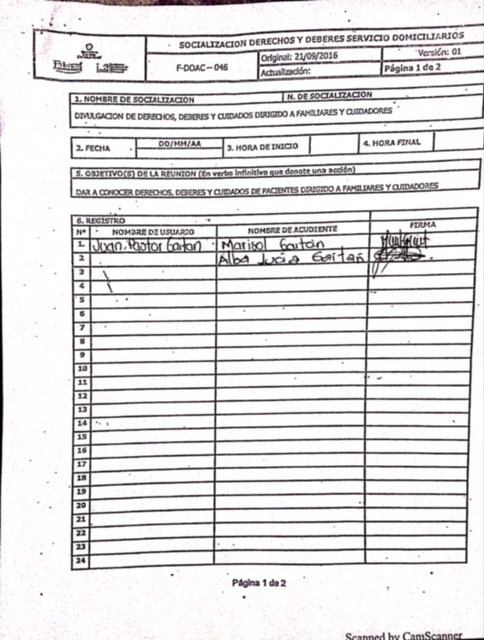 SOCIALIZACION DERECHOS Y DEBERES SERVICIO DOMICILIARIOS
F-DOAC-046
Original: 21/09/2016
Versión: 01
Actualización:
Página 1 de 2
1. NOMBRE DE SOCIALIZACION
N. DE SOCIALIZACION
DIVULGACION DE DERECHOS, DEBERES Y CUIDADOS DIRIGIDO A FAMILIARES Y CUIDADORES
2. FECHA
DD/MM/AA
3. HORA DE INICIO
4. HORA FINAL
5. OBJETIVO(S) DE LA REUNION (En verbo infinitivo que denote una acción)
DAR A CONOCER DERECHOS, DEBERES Y CUIDADOS DE PACIENTES DIRIGIDO A FAMILIARES Y CUIDADORES
6. REGISTRO
Nº NOMBRE DE USUARIO NOMBRE DE ACUDIENTE FIRMA
1. Juan Pastor Gaitan Marisol Gaitán
2 Alba Lucia Gaitán
3
4
5
6
7
8
9
10
11
12
13
14
15
16
17
18
19
20
21
22
23
24
Página 1 de 2
Scanned by CamScanner